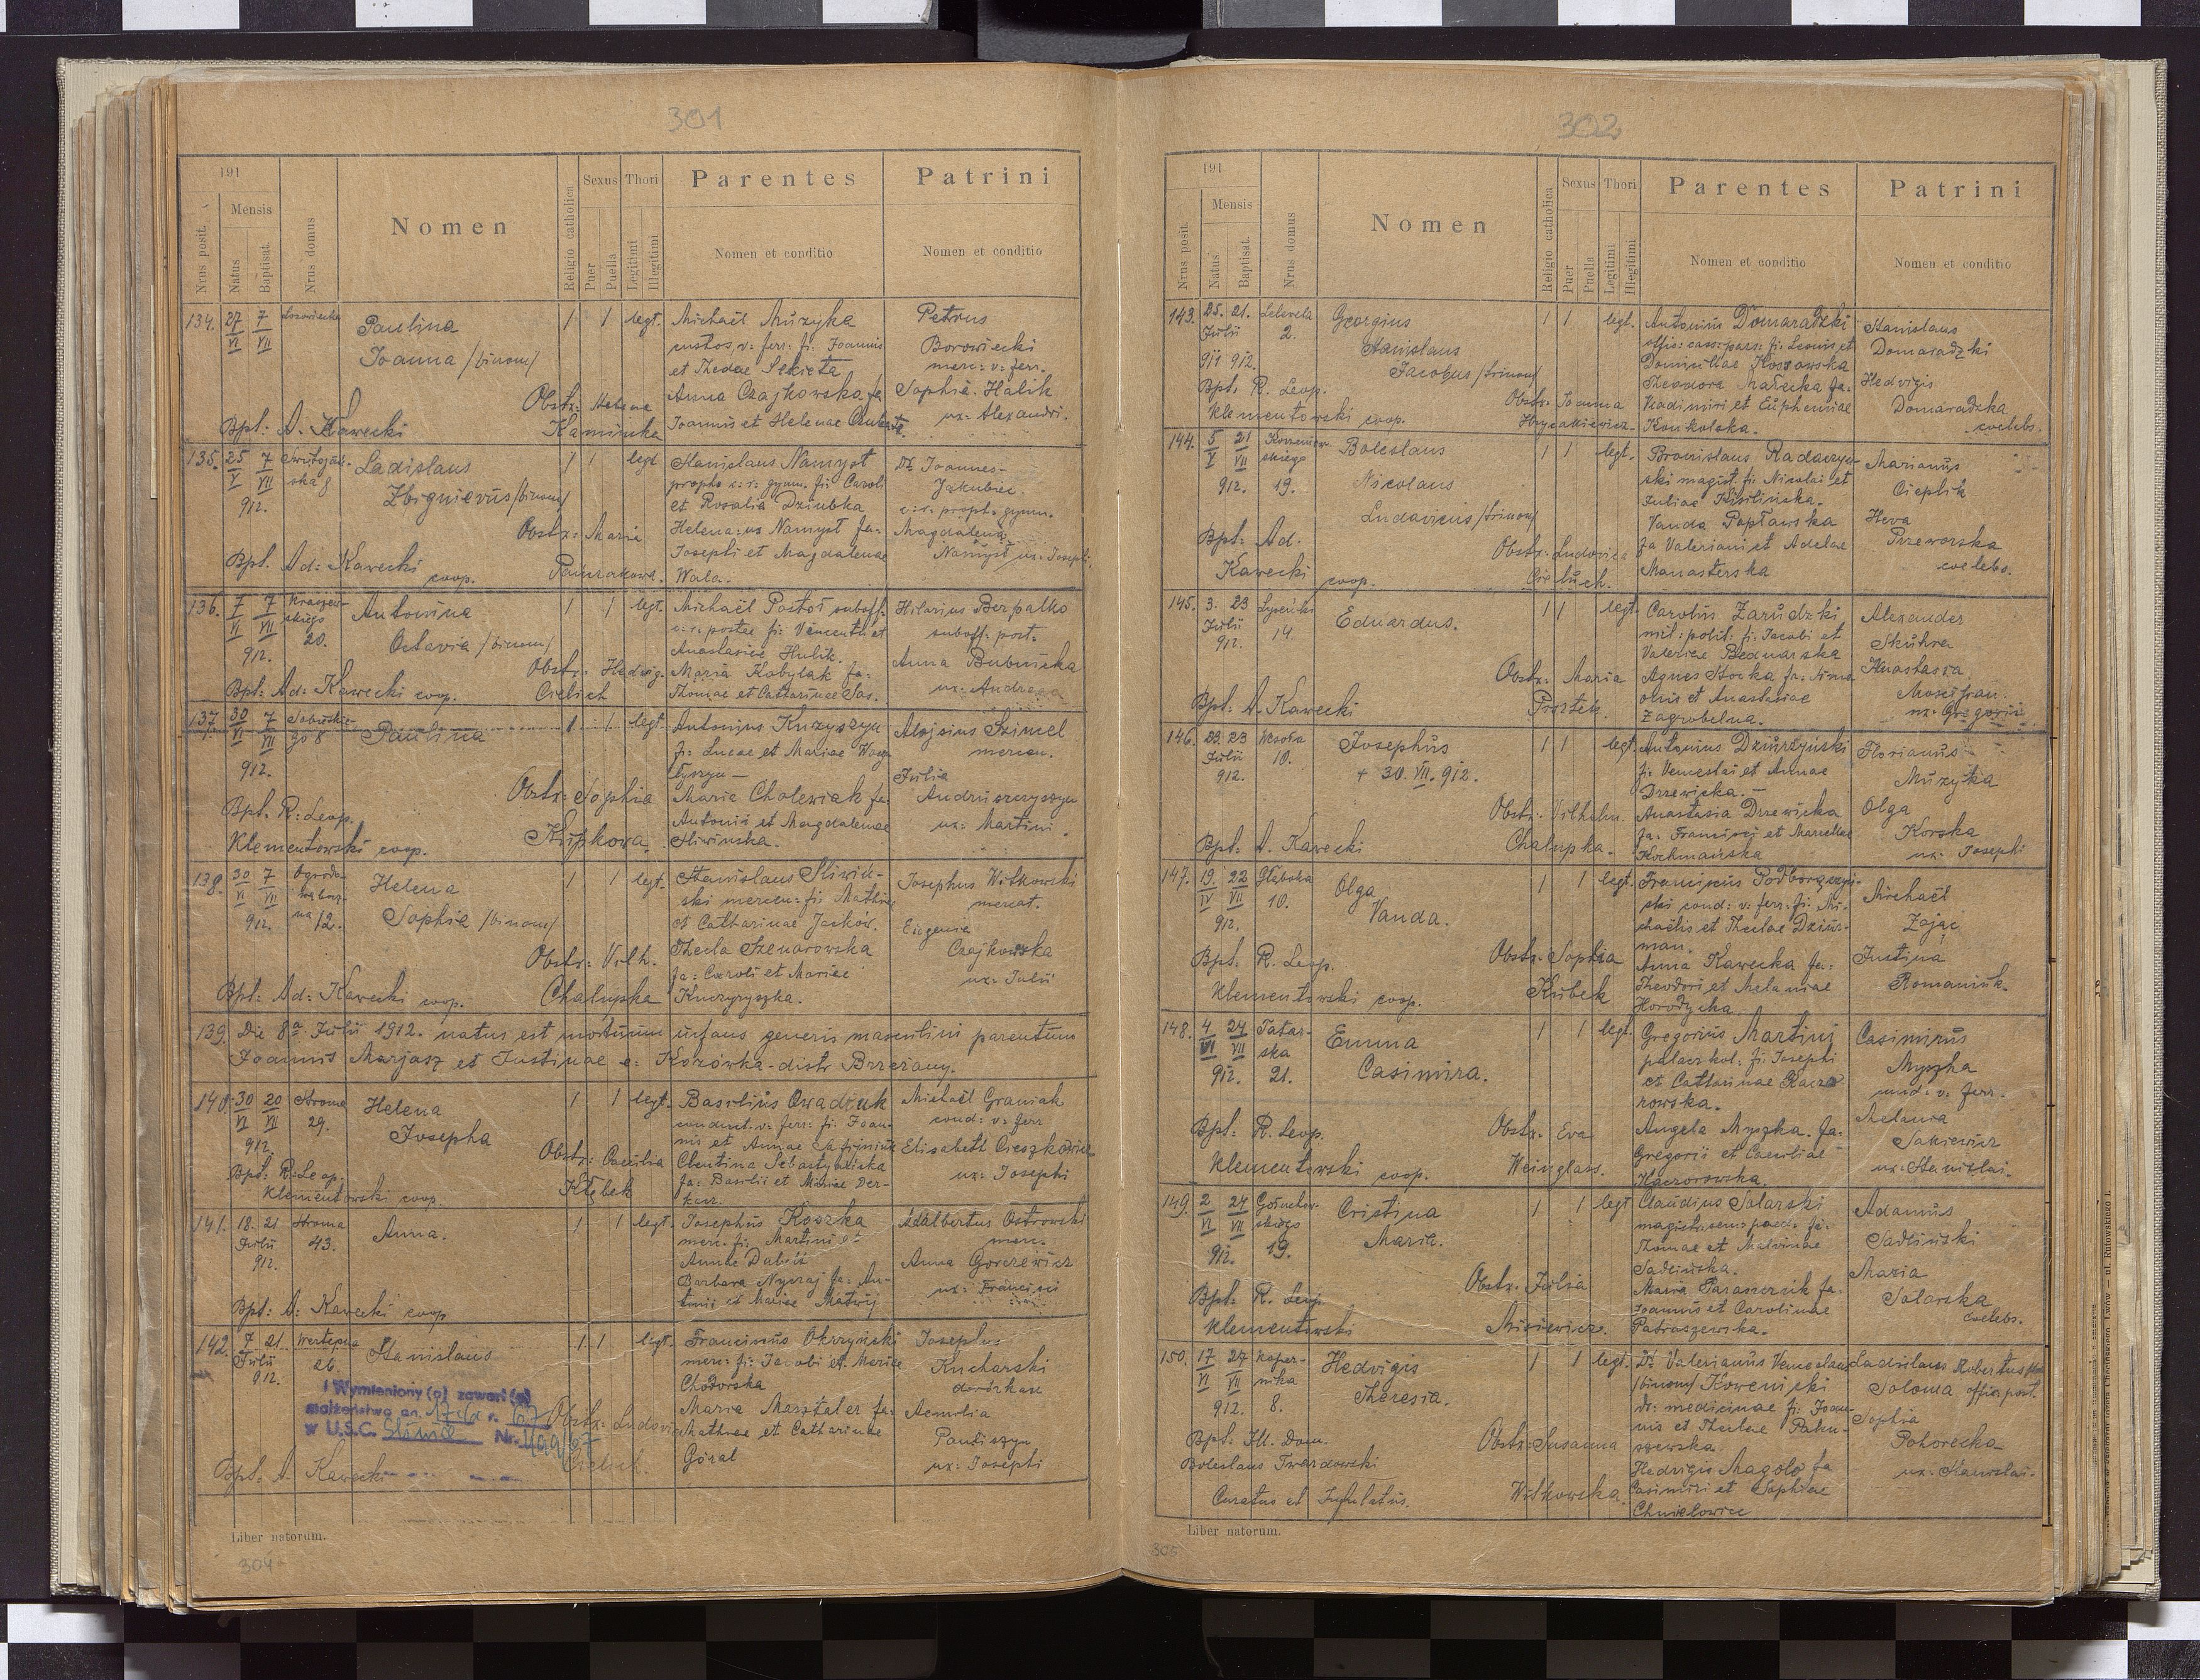 301
191
Mensis
Nrus posit.
Natus
Baptisat.
Nrus domus
Nomen
Religio catholica
Sexus
Puer
Puella
Thori
Legitimi
Illegitimi
Parentes
Nomen et conditio
Patrini
Nomen et conditio
134. 27/VI 7/VII
Paulina
Joanna /binom/
1 1 legt.
Michaël Muzyka
custos v: ferr: fi: Joannis
et Theclae Sekieta
Anna Czajkowska fa
Joannis et Helenae
Petrus
Borowiecki
merc: v: ferr.
Sophia Halik
ux: Alexandri.
Obstx: Helena
Kaminska
Bpt: A. Kawecki
135. 25/V 7/VII 912.
Ladislaus
Zbignievus /binom/
1 1 legt
Stanislaus Namyst
c: r: gymn. fi: Caroli
et Rosalia Dziubka
Helena: us Namyst fa-
Josephi et Magdalenae
Wala.
Dr Joannes
Jakubiec
c: r: gymn.
Magdalena
Namyst ux: Josephi.
Obstx: Maria
Bpt. Ad: Kawecki coop.
136. 7/VI 7/VII 912. Kraszewskiego 20.
Antonina
Octavia /binom/
1 1 legt.
Michaël Postoi suboff.
c. r. postae fi: Vincentii et
Anastasiae Hulik.
Maria Kobylak fa:
Thomae et Catharinae Sas.
Hilarius Berpalko
suboff: post.
Anna Bubnicka
ux: Andreae
Obstx: Hedvig.
Cielich
Bpt: Ad: Kawecki coop.
137. 30/VI 7/VII 912. Sobieskiego 8
Paulina
1 1 legt.
Antonius Kuzyszyn
fi: Lucae et Mariae
Maria Cholewiak fa:
Antonii et Magdalenae
Sliwinska.
Alojsius Szimel
mercen.
Julia
Andruszczyszyn
ux: Martini.
Obstx: Sophia
Krupkowa.
Bpt. R: Leop.
Klementowski coop.
138. 30/VI 7/VII 912. 12.
Helena
Sophia /binom/
1 1 legt.
Stanislaus Sliwin-
ski mercen: fi: Mathiae
et Catharinae Jackow.
Thecla Szenarowska
fa: Caroli et Mariae
Kuczyryszka.
Josephus Witkowski
mercat.
Eugenia
Czajkowska
ux: Julii
Obstx: Vilh.
Chalupka
Bpt: Ad: Kawecki coop.
139. Die 8a Julii 1912. natus est mortuum infans generis masculini parentum
Joannis Marjasz et Justinae e: Kozówka distr Brzeżany.
140. 30/VI 20/VII 912. Stroma 29.
Helena
Josepha
1 1 legt.
Basilius Owadiuk
conduct. v: ferr: fi: Joan-
nis et Annae
Clentina
fa: Basilii et Mariae Der-
kacz.
Michaël Graniak
cond: v: ferr
Elisabeth Cieszkowicz
ux: Josephi
Obstx: Caecilia
Kłębek
Bpt. R: Leop:
Klementowski coop.
141. 18. 21 Julii 912. Stroma 43.
Anna.
1 1 legt.
Josephus Koszka
merc. fi: Martini et
Annae
Barbara Nyczaj fa: An-
tonii et Mariae Matwij
Adalbertus Ostrowski
merc.
Anna Gorczewicz
ux: Francisci
Bpt: A: Kawecki coop
142. 7 21 Julii 912. 26.
Stanislaus
1 1 legt.
Franciscus Okrzynski
merc: fi: Jacobi et Mariae
Chodorska
Maria Masztaler fa:
Mathiae et Catharinae
Góral
Josephus
Kucharski
dorożkarz
Aemilia
Pauliszyn
ux: Josephi
Wymieniony (a) zawarł (a)
małżeństwo dn. r.
w U.S.C. Nr.
Obstx: Ludovica
Cieluch.
Bpt. A. Kawecki
Liber natorum.
304
302
191
Mensis
Nrus posit.
Natus
Baptisat.
Nrus domus
Nomen
Religio catholica
Sexus
Puer
Puella
Thori
Legitimi
Illegitimi
Parentes
Nomen et conditio
Patrini
Nomen et conditio
143. 25. 21. Julii 911 912. Lelevela 2.
Georgius
Stanislaus
Jacobus /trinom/
1 1 legt.
Antonius Domaradzki
offic: cass: fi: Leonis et
Domicillae Kossowska
Theodora Małecka fa:
Vladimiri et Euphemiae
Konkolska.
Stanislaus
Domaradzki
Hedvigis
Domaradzka
coelebs.
Bpt. R. Leop.
Klementowski coop.
Obstx: Joanna
Hrycakiewicz
144. 5/V 21/VII 912. Korzeniowskiego 19.
Boleslaus
Nicolaus
Ludovicus /trinom/
1 1 legt.
Bronislaus Radaczyn-
ski magist. fi: Nicolai et
Juliae Kisilinska.
Vanda Popławska
fa Valeriani et Adelae
Manasterska
Marianus
Cieplik
Heva
Przeworska
coelebs.
Bpt: Ad.
Kawecki coop.
Obstx: Ludovica
Cieluch.
145. 3. 23 Julii 912. 14.
Eduardus.
1 1 legt.
Carolus Zarudzki
mil: polit: fi: Jacobi et
Valeriae Bednarska
Agnes Stocka fa: Sime-
onis et Anastasiae
Zagrobelna.
Alexander
Skuhra
Anastasia
ux: Gregorii
Obstx: Maria
Bpt. A. Kawecki
146. 23. 23 Julii 912. Wesoła 10.
Josephus
+ 30. VII. 912.
1 1 legt.
Antonius Dziurzynski
fi: Venceslai et Annae
Drzewicka.
Anastasia Drzewicka
fa: Francisci et Marcellae
Kochmańska
Florianus
Muzyka
Olga
Korska
ux: Josephi
Obstx: Vilhelm.
Chalupka
Bpt: A. Kawecki
147. 19./IV 22/VII 912. Głęboka 10.
Olga
Vanda.
1 1 legt.
Franciscus Podborączyn-
ski cond: v: ferr: fi: Mi-
chaëlis et Theclae Dziur-
man.
Anna Kawecka fa:
Theodori et Melaniae
Horodycka
Michaël
Zając
Justina
Romaniuk.
Bpt. R. Leop.
Klementowski coop.
Obstx: Sophia
Kubek
148. 4/VI 24/VII 912. Tatarska 21.
Emma
Casimira.
1 1 legt.
Gregorius Martinj
fi: Josephi
et Catharinae Kaczo-
rowska.
Angela Myszka fa:
Gregorii et Caeciliae
Kaczorowska.
Casimirus
Myszka
cond: v: ferr.
Melania
Sakiewicz
ux: Stanislai.
Bpt: R. Leop.
Klementowski coop.
Obstx: Eva
Weinglass.
149. 2/VI 24/VII 912. 19.
Cristina
Maria.
1 1 legt
Claudius Salarski
magist: sem: paed. fi:
Thomae et Malvinae
Sadlińska.
Maria Paraszczuk fa:
Joannis et Carolinae
Patraszewska.
Adamus
Sadliński
Maria
Salarska
coelebs.
Bpt: R. Leop
Klementowski
Obstx. Julia
Misiewicz.
150. 17/VI 27/VII 912. Kopernika 8.
Hedvigis
Theresia.
1 1 legt.
Dr Valerianus Venceslaus
/binom/ Kowenicki
dr: medicinae fi: Joan-
nis et Theclae
Hedvigis Magola fa
Casimiri et Sophiae
Ladislaus Robertus
Soloma offic: post.
Sophia
Pohorecka
ux: Stanislai.
Bpt. Ill. Dom.
Boleslaus Twardowski
Curatus et Infulatus.
Obstx: Susanna
Witkowska
Liber natorum.
305